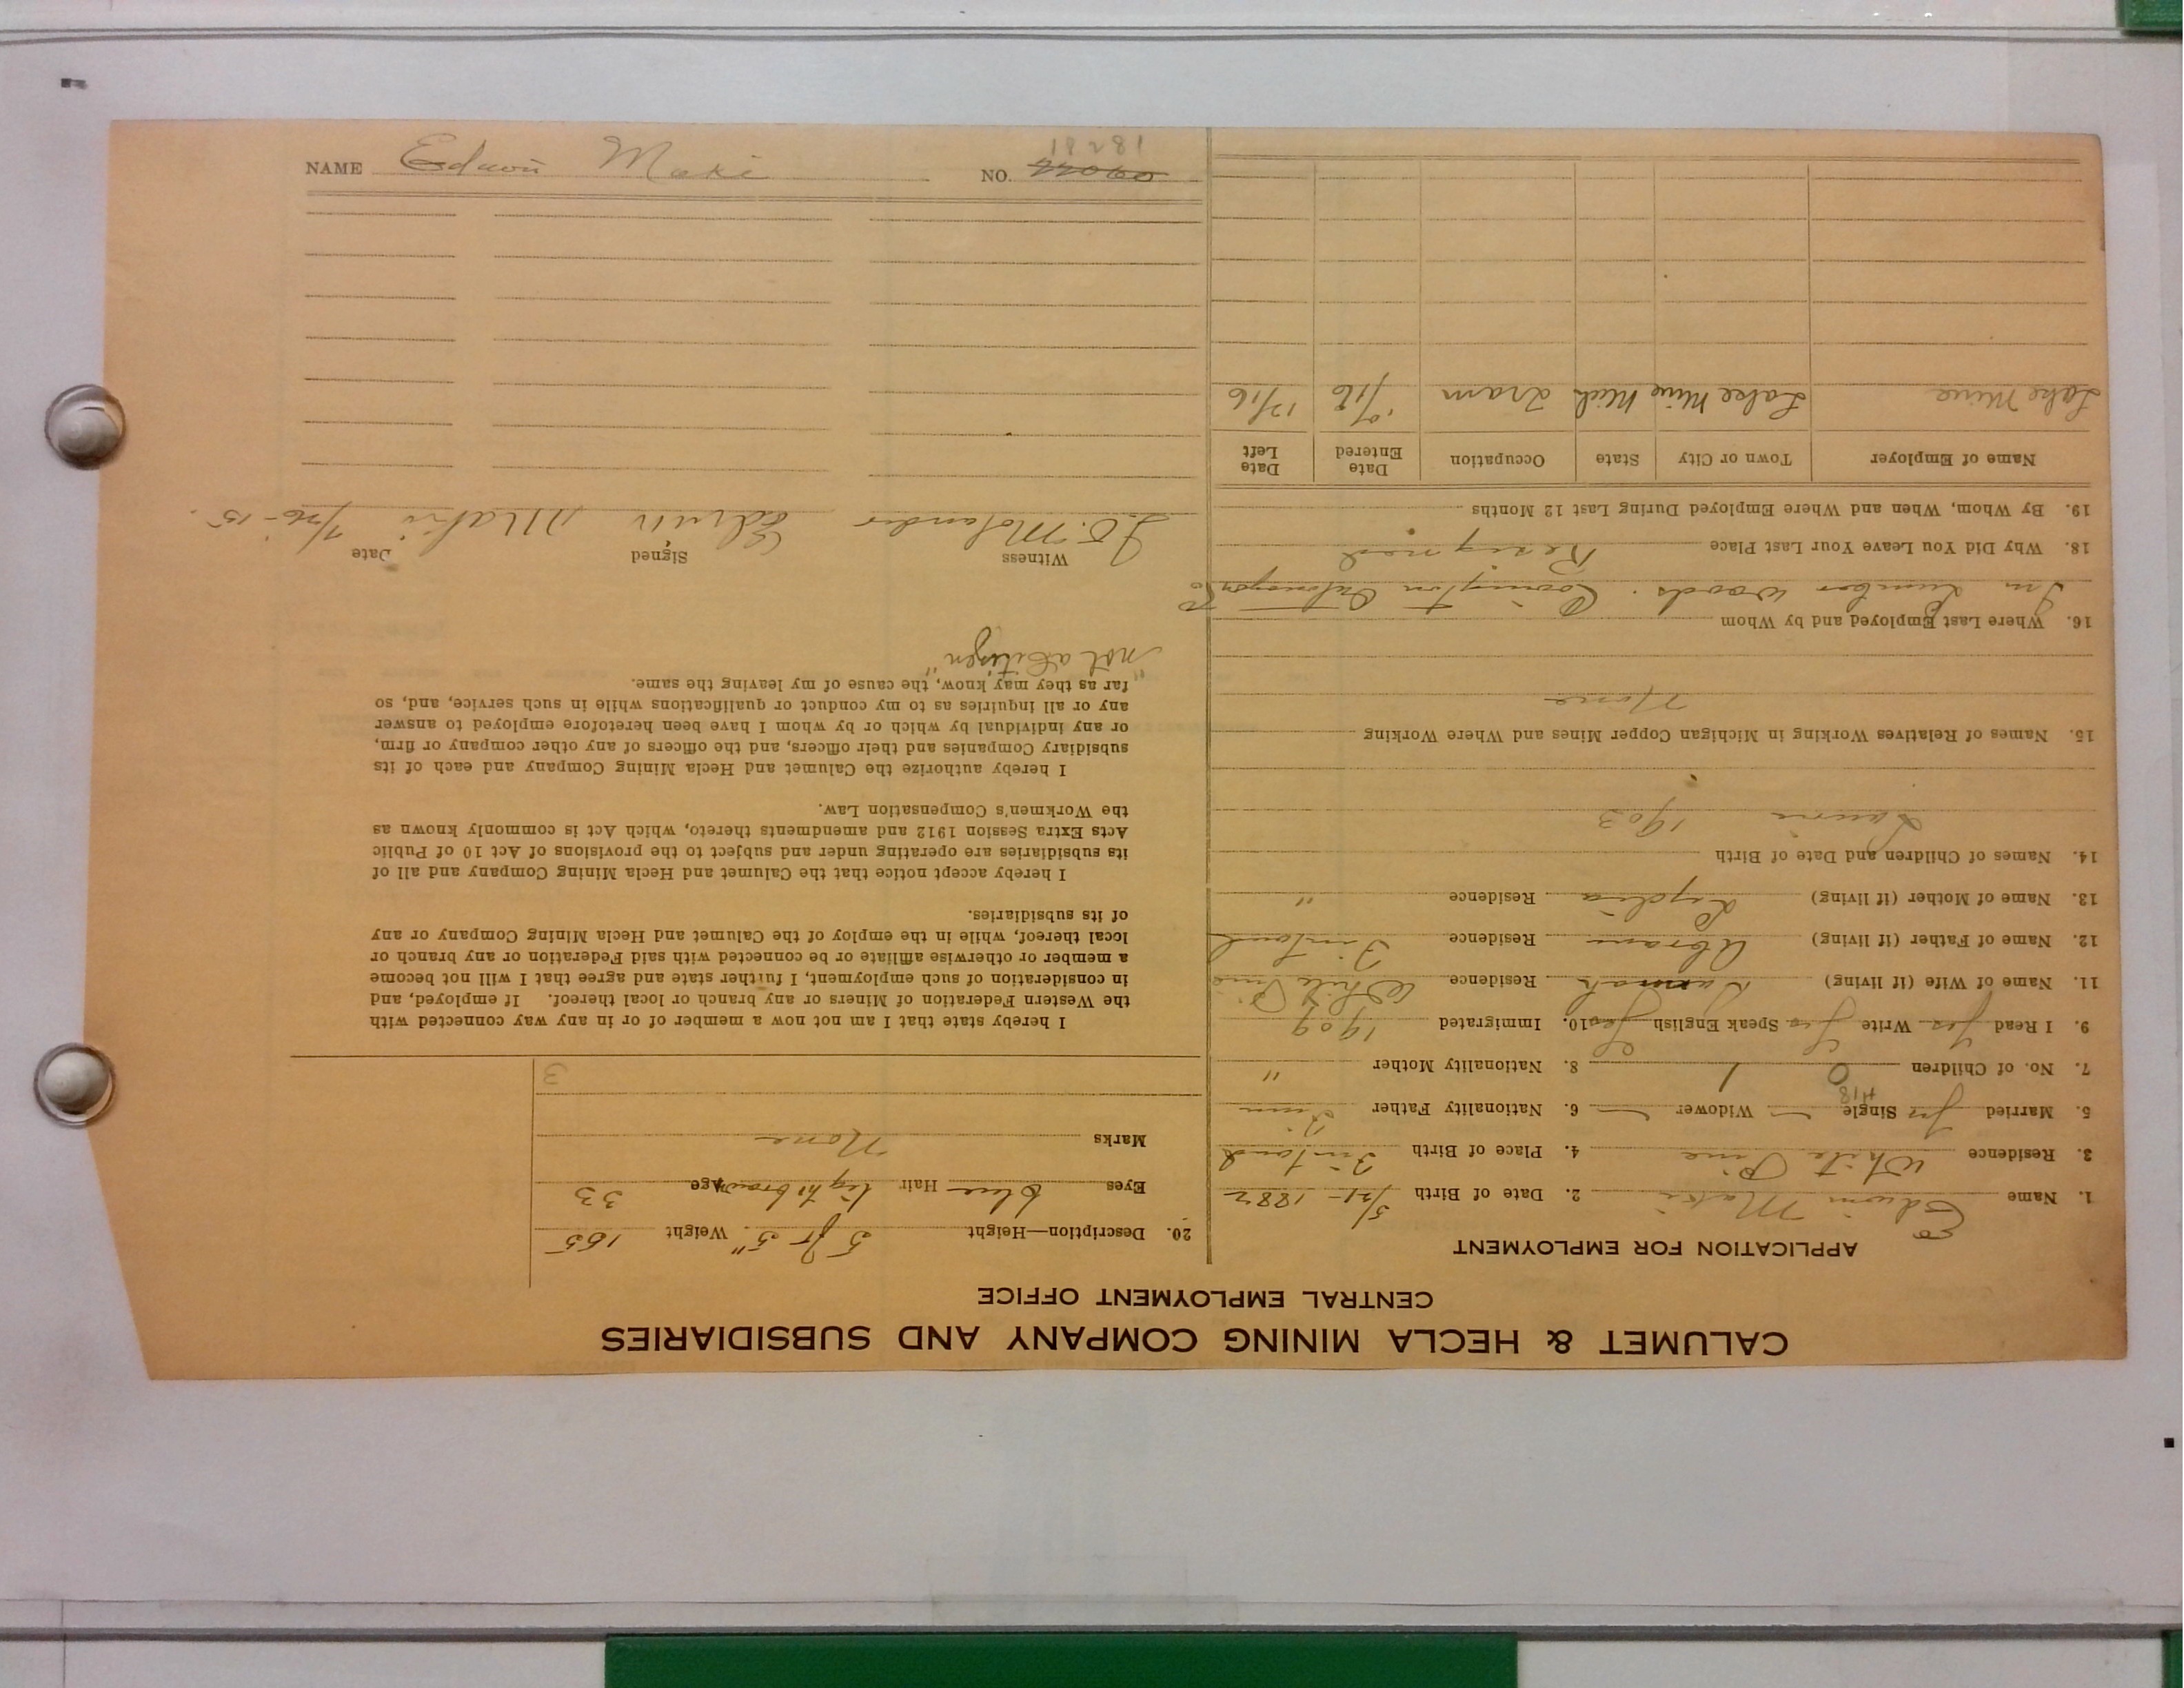 CALUMET & HECLA MINING COMPANY AND SUBSIDIARIES
CENTRAL EMPLOYMENT OFFICE
APPLICATION FOR EMPLOYMENT
1. Name Edwin Maki 2. Date of Birth 5/21-1882
3. Residence White Pine 4. Place of Birth Finland
5. Married yes Single Widower 6. Nationality Father Finn
7. No. of Children 1 8. Nationality Mother "
9. I Read yes Write yes Speak English 10. Immigrated 1909
11. Name of Wife (if living) Residence White Pine
12. Name of Father (if living) Abram Residence Finland
13. Name of Mother (if living) Lydia Residence "
14. Names of Children and Date of Birth
Lauri 1903
15. Names of Relatives Working in Michigan Copper Mines and Where Working
None
16. Where Last Employed and by Whom
In Lumber woods. Covington
18. Why Did You Leave Your Last Place Resigned
19. By Whom, When and Where Employed During Last 12 Months
Name of Employer Town or City State Occupation Date Entered Date Left
Lake Mine Lake Mine Mich Tram /16 12/16
20. Description—Height 5 ft 5" Weight 165
Eyes blue Hair light brown Age 33
Marks None
3
I hereby state that I am not now a member of or in any way connected with
the Western Federation of Miners or any branch or local thereof. If employed, and
in consideration of such employment, I further state and agree that I will not become
a member or otherwise affiliate or be connected with said Federation or any branch or
local thereof, while in the employ of the Calumet and Hecla Mining Company or any
of its subsidiaries.
I hereby accept notice that the Calumet and Hecla Mining Company and all of
its subsidiaries are operating under and subject to the provisions of Act 10 of Public
Acts Extra Session 1912 and amendments thereto, which Act is commonly known as
the Workmen's Compensation Law.
I hereby authorize the Calumet and Hecla Mining Company and each of its
subsidiary Companies and their officers, and the officers of any other company or firm,
or any individual by which or by whom I have been heretofore employed to answer
any or all inquiries as to my conduct or qualifications while in such service, and, so
far as they may know, the cause of my leaving the same.
"not a Citizen"
Witness Signed Date
J.O. Molander Edwin Maki 7/26-15.
NAME Edwin Maki NO. 18281